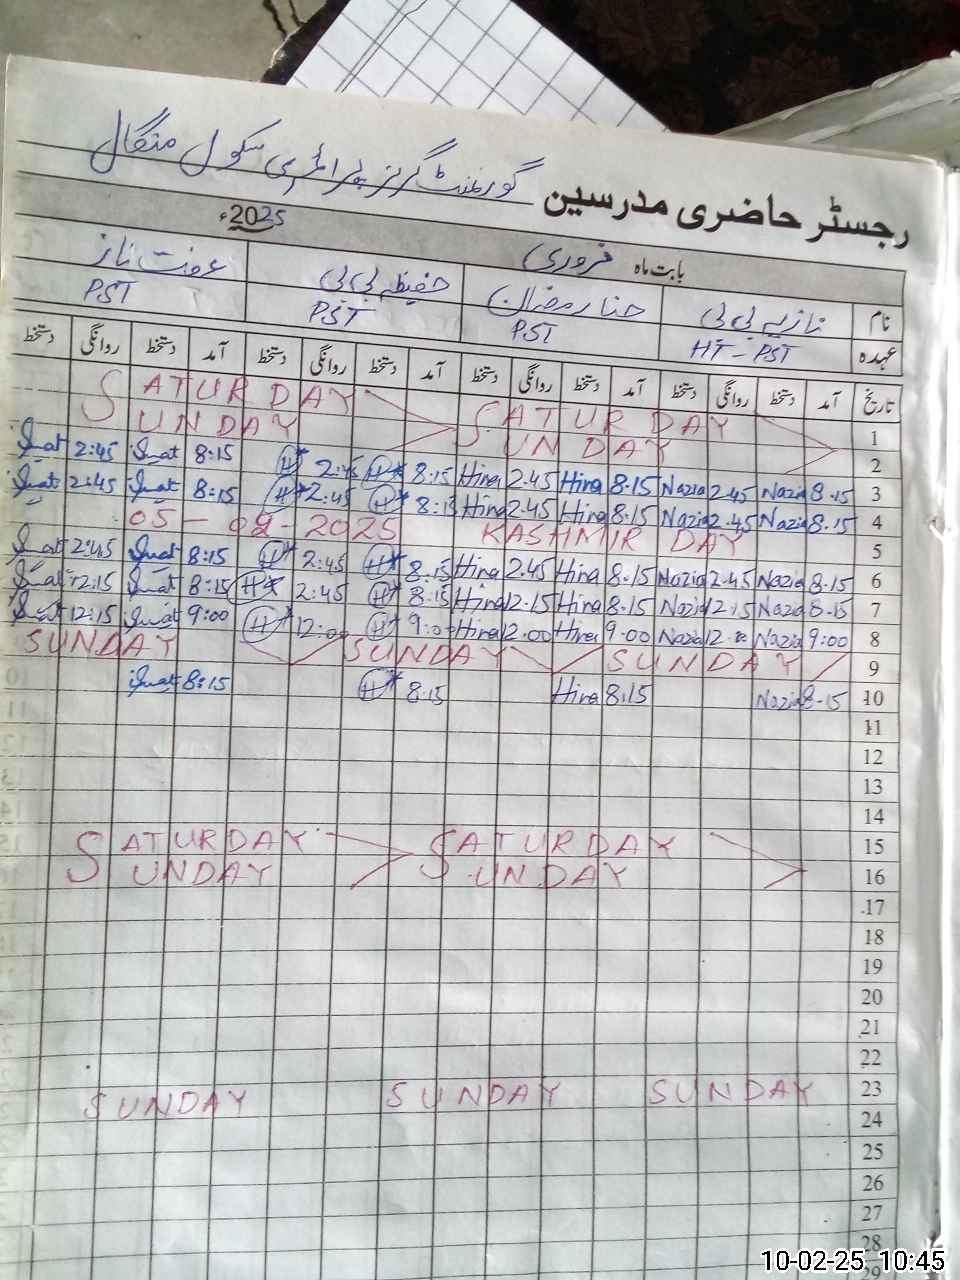 گورنمنٹ گرلز پرائمری سکول منگال
رجسٹر حاضری مدرسین
بابت ماہ فروری 2025ء
نام نازیہ بی بی حنا رمضان حفیظہ بی بی عفت ناز
عہدہ HT-PST PST PST PST
تاریخ آمد دستخط روانگی دستخط آمد دستخط روانگی دستخط آمد دستخط روانگی دستخط آمد دستخط روانگی دستخط
SATURDAY SATURDAY 1
SUNDAY SUNDAY 2
2:45 8:15 H 2:45 H 8:15 Hira 2.45 Hira 8.15 Nazia 2.45 Nazia 8.15 3
2:45 8:15 H 2:45 H 8:15 Hira 2.45 Hira 8.15 Nazia 2.45 Nazia 8.15 4
05-02-2025 KASHMIR DAY 5
2:45 8:15 H 2:45 H 8:15 Hira 2.45 Hira 8.15 Nazia 2.45 Nazia 8.15 6
12:15 8:15 H 2:45 H 8:15 Hira 12.15 Hira 8.15 Nazia 12.15 Nazia 8.15 7
12:15 9:00 H 12:00 H 9:00 Hira 12.00 Hira 9.00 Nazia 12. Nazia 9:00 8
SUNDAY SUNDAY SUNDAY 9
8:15 H 8:15 Hira 8.15 Nazia 8.15 10
11
12
13
14
SATURDAY SATURDAY 15
SUNDAY SUNDAY 16
17
18
19
20
21
22
SUNDAY SUNDAY SUNDAY 23
24
25
26
27
28
29
10-02-25 10:45